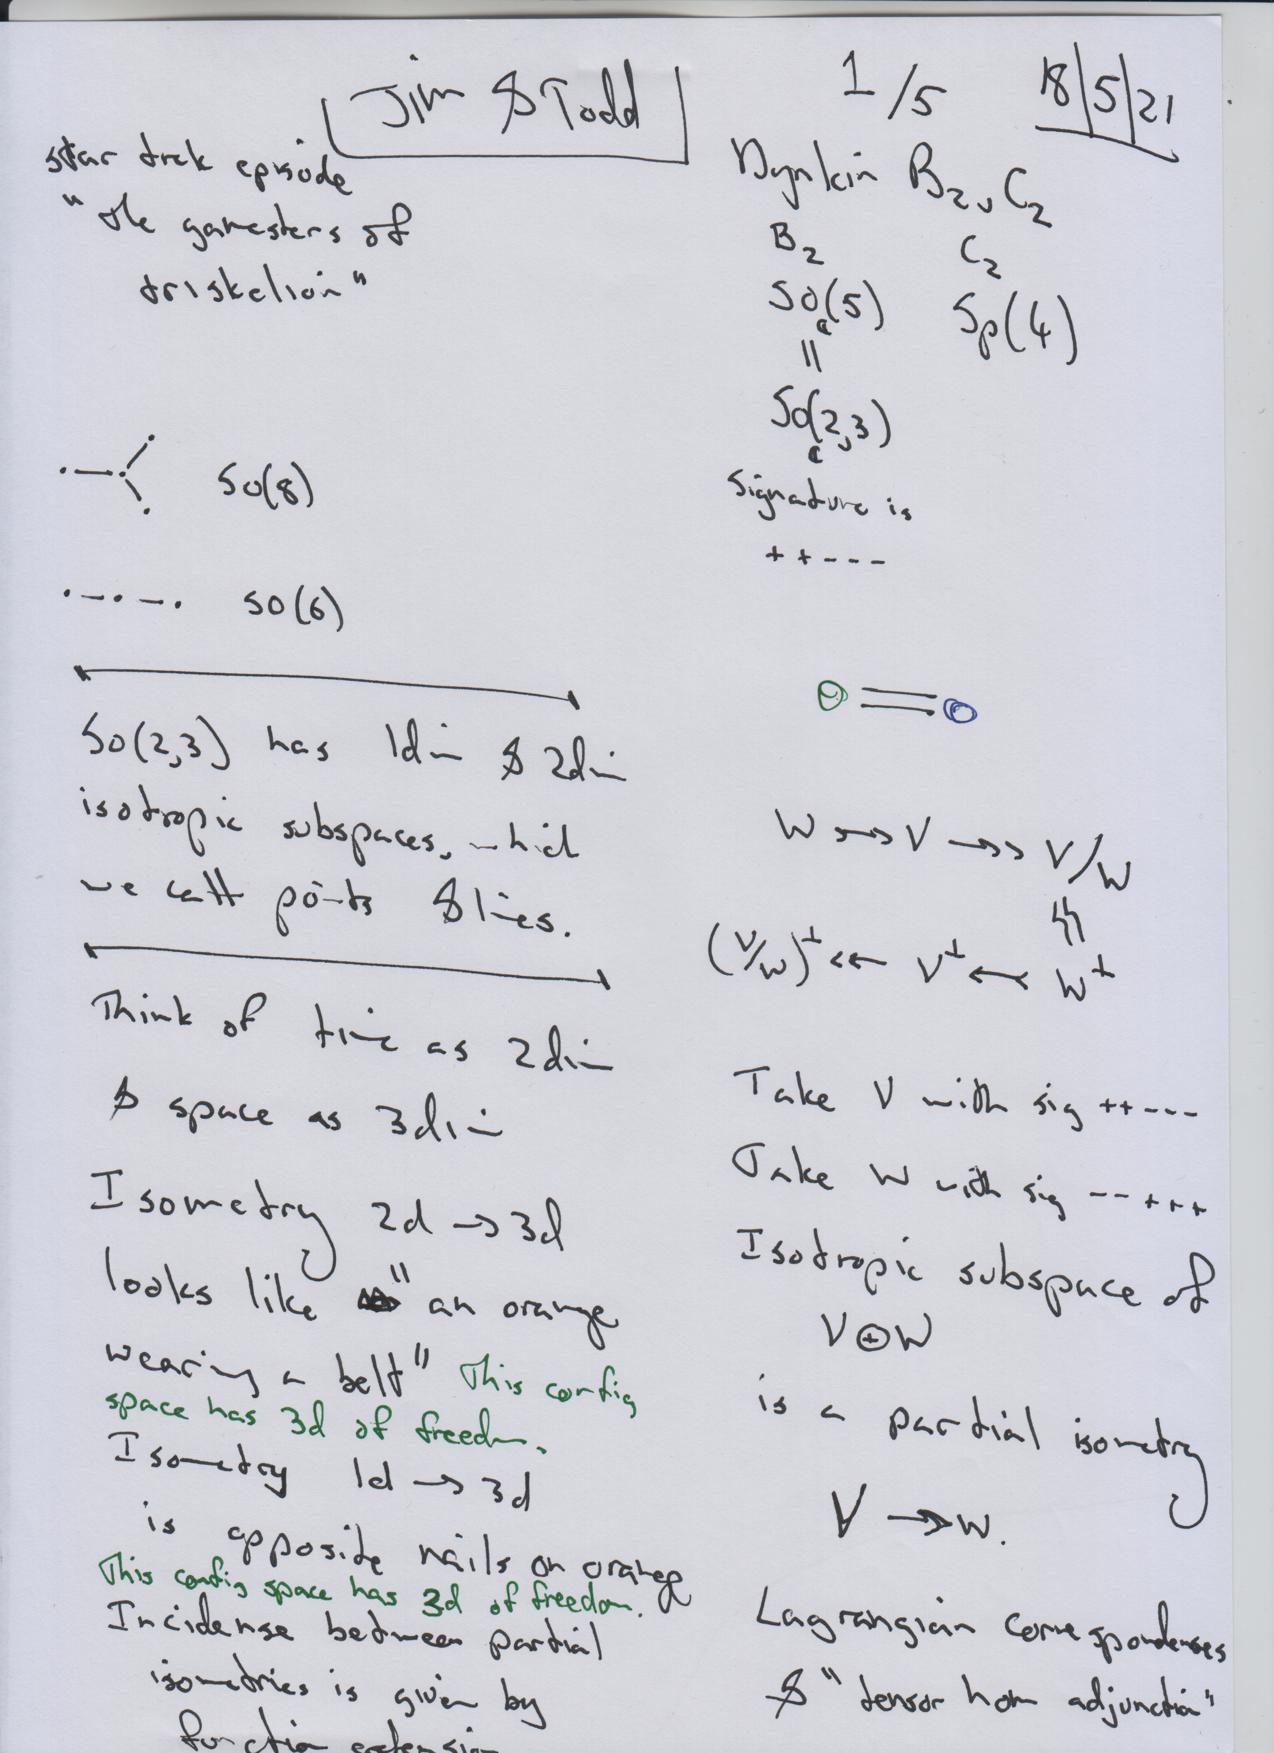 Jim & Todd
1/5
18/5/21
star trek episode
"the gamesters of
triskelion"
SO(8)
SO(6)
SO(2,3) has 1dim & 2dim
isotropic subspaces, which
we call points & lines.
Think of time as 2dim
& space as 3dim
Isometry 2d → 3d
looks like "an orange
wearing a belt" This config
space has 3d of freedom.
Isometry 1d → 3d
is opposite nails on orange
This config space has 3d of freedom.
Incidense between partial
isometries is given by
function extension
Dynkin B₂, C₂
B₂ C₂
SO(5) Sp(4)
=
SO(2,3)
Signature is
++---
W ↣ V ↠ V/W
(V/W)^⊥ ↞ V^⊥ ↢ W^⊥
Take V with sig ++---
Take W with sig --+++
Isotropic subspace of
V⊕W
is a partial isometry
V → W.
Lagrangian correspondenses
& "tensor hom adjunction"